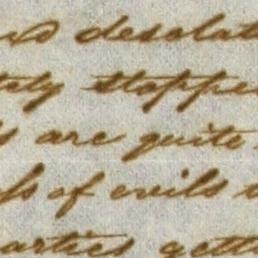 desolat
tely stopped
s are quite
ss of evils
arties gett